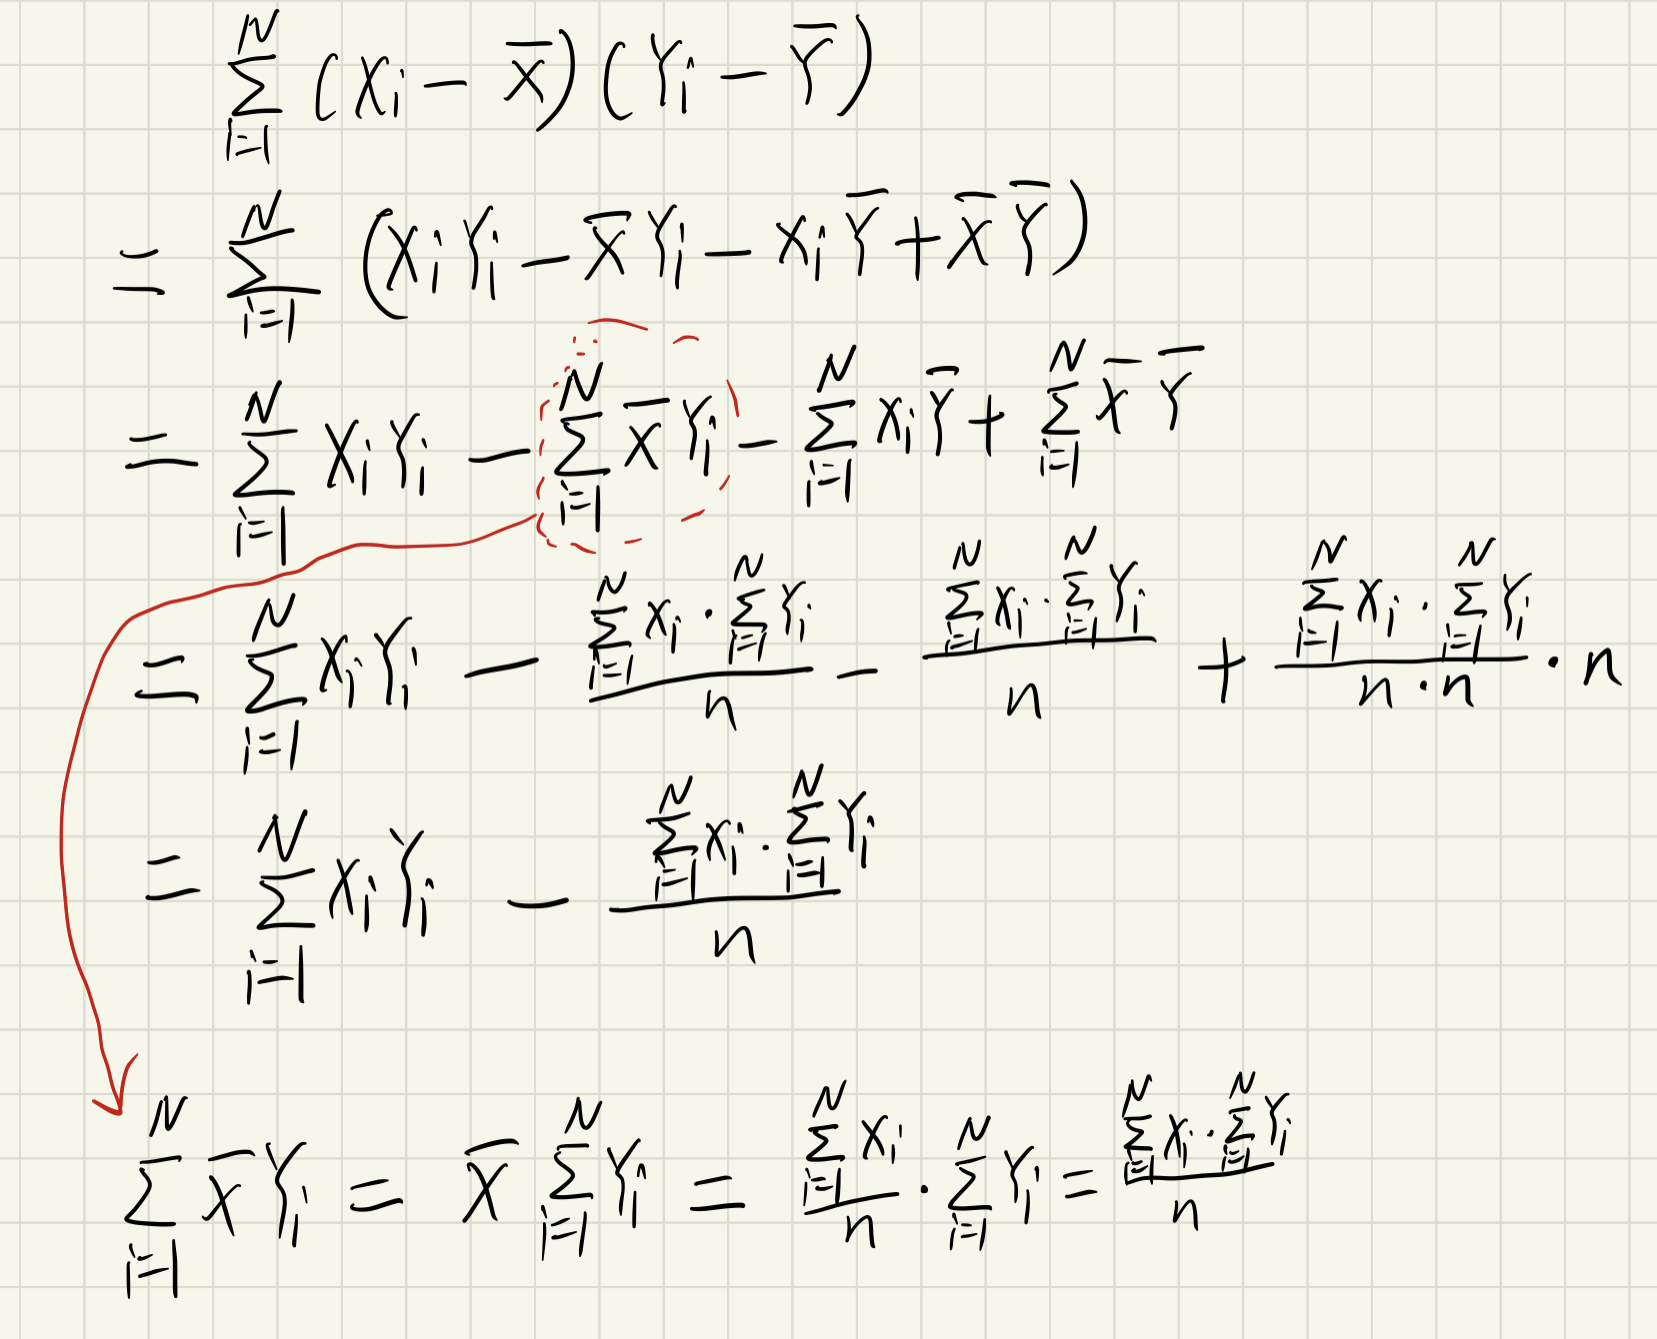 $\sum_{i=1}^{N} (X_i - \overline{X})(Y_i - \overline{Y})$
$= \sum_{i=1}^{N} (X_i Y_i - \overline{X} Y_i - X_i \overline{Y} + \overline{X}\,\overline{Y})$
$= \sum_{i=1}^{N} X_i Y_i - \sum_{i=1}^{N} \overline{X} Y_i - \sum_{i=1}^{N} X_i \overline{Y} + \sum_{i=1}^{N} \overline{X}\,\overline{Y}$
$= \sum_{i=1}^{N} X_i Y_i - \frac{\sum_{i=1}^{N} X_i \cdot \sum_{i=1}^{N} Y_i}{n} - \frac{\sum_{i=1}^{N} X_i \cdot \sum_{i=1}^{N} Y_i}{n} + \frac{\sum_{i=1}^{N} X_i \cdot \sum_{i=1}^{N} Y_i}{n \cdot n} \cdot n$
$= \sum_{i=1}^{N} X_i Y_i - \frac{\sum_{i=1}^{N} X_i \cdot \sum_{i=1}^{N} Y_i}{n}$
$\sum_{i=1}^{N} \overline{X} Y_i = \overline{X} \sum_{i=1}^{N} Y_i = \frac{\sum_{i=1}^{N} X_i}{n} \cdot \sum_{i=1}^{N} Y_i = \frac{\sum_{i=1}^{N} X_i \cdot \sum_{i=1}^{N} Y_i}{n}$